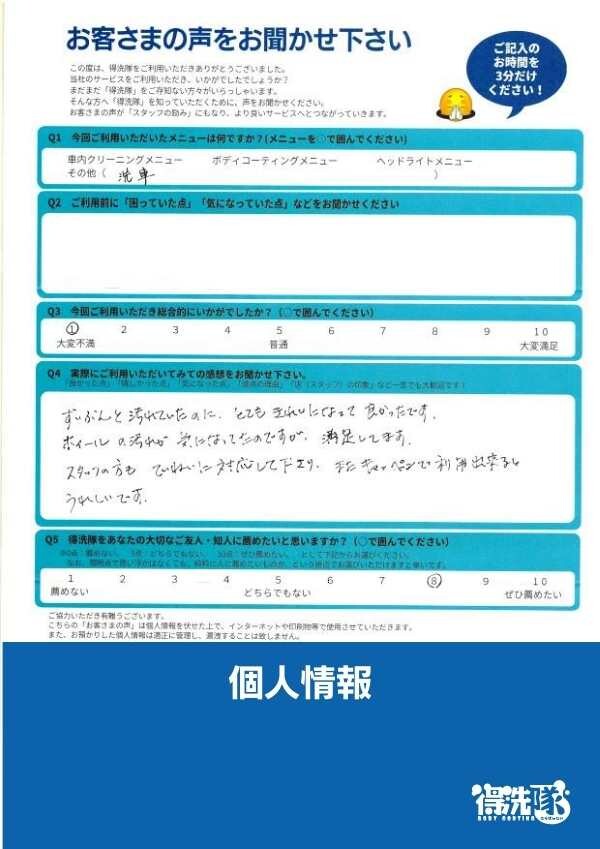 お客さまの声をお聞かせ下さい
ご記入の
お時間を
3分だけ
ください！
この度は、得洗隊をご利用いただきありがとうございました。
当社のサービスをご利用いただき、いかがでしたでしょうか？
まだまだ「得洗隊」をご存知ない方々がいらっしゃいます。
そんな方へ「得洗隊」を知っていただくために、声をお聞かせください。
お客さまの声が「スタッフの励み」にもなり、より良いサービスへとつながっていきます。
Q1 今回ご利用いただいたメニューは何ですか？(メニューを○で囲んでください)
車内クリーニングメニュー ボディコーティングメニュー ヘッドライトメニュー
その他（ 洗車 ）
Q2 ご利用前に「困っていた点」「気になっていた点」などをお聞かせください
Q3 今回ご利用いただき総合的にいかがでしたか？（○で囲んでください）
1 2 3 4 5 6 7 8 9 10
大変不満 普通 大変満足
Q4 実際にご利用いただいてみての感想をお聞かせ下さい。
「良かった点」「嬉しかった点」「気になった点」「満点の理由」「店（スタッフ）の印象」など一言でも大歓迎です！
ずいぶんと汚れていたのに、とてもきれいになって良かったです。
ホイールの汚れが気になってたのですが、満足してます。
スタッフの方もていねいに対応して下さり、またキャンペーンで利用出来ると
うれしいです。
Q5 得洗隊をあなたの大切なご友人・知人に薦めたいと思いますか？（○で囲んでください）
※0点：薦めない。 5点：どちらでもない。 10点：ぜひ薦めたい。 として下記からお選びください。
1 2 3 4 5 6 7 8 9 10
薦めない どちらでもない ぜひ薦めたい
ご協力いただき有難うございます。
こちらの「お客さまの声」は個人情報を伏せた上で、インターネットや印刷物等で使用させていただきます。
また、お預かりした個人情報は適正に管理し、漏洩することは致しません。
個人情報
得洗隊
BODY COATING